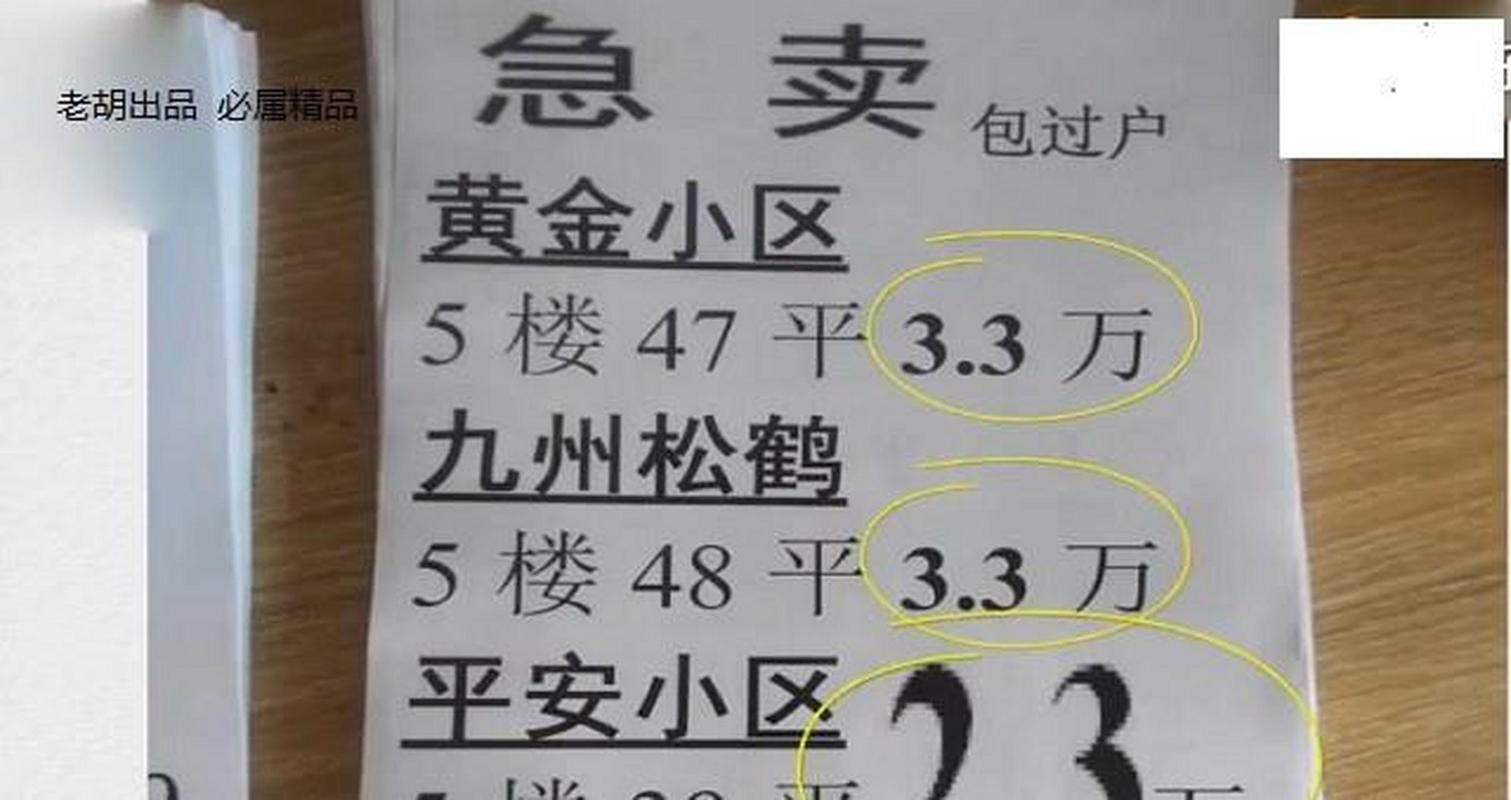 老胡出品 必属精品
急 卖 包过户
黄金小区
5 楼 47 平 3.3 万
九州松鹤
5 楼 48 平 3.3 万
平安小区